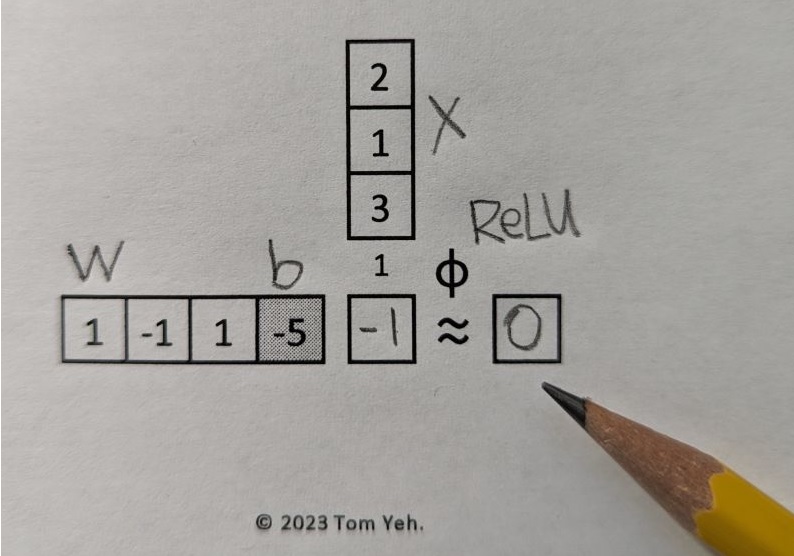 2
1 X
3
ReLU
W b 1 ϕ
1 -1 1 -5 -1 ≈ 0
© 2023 Tom Yeh.